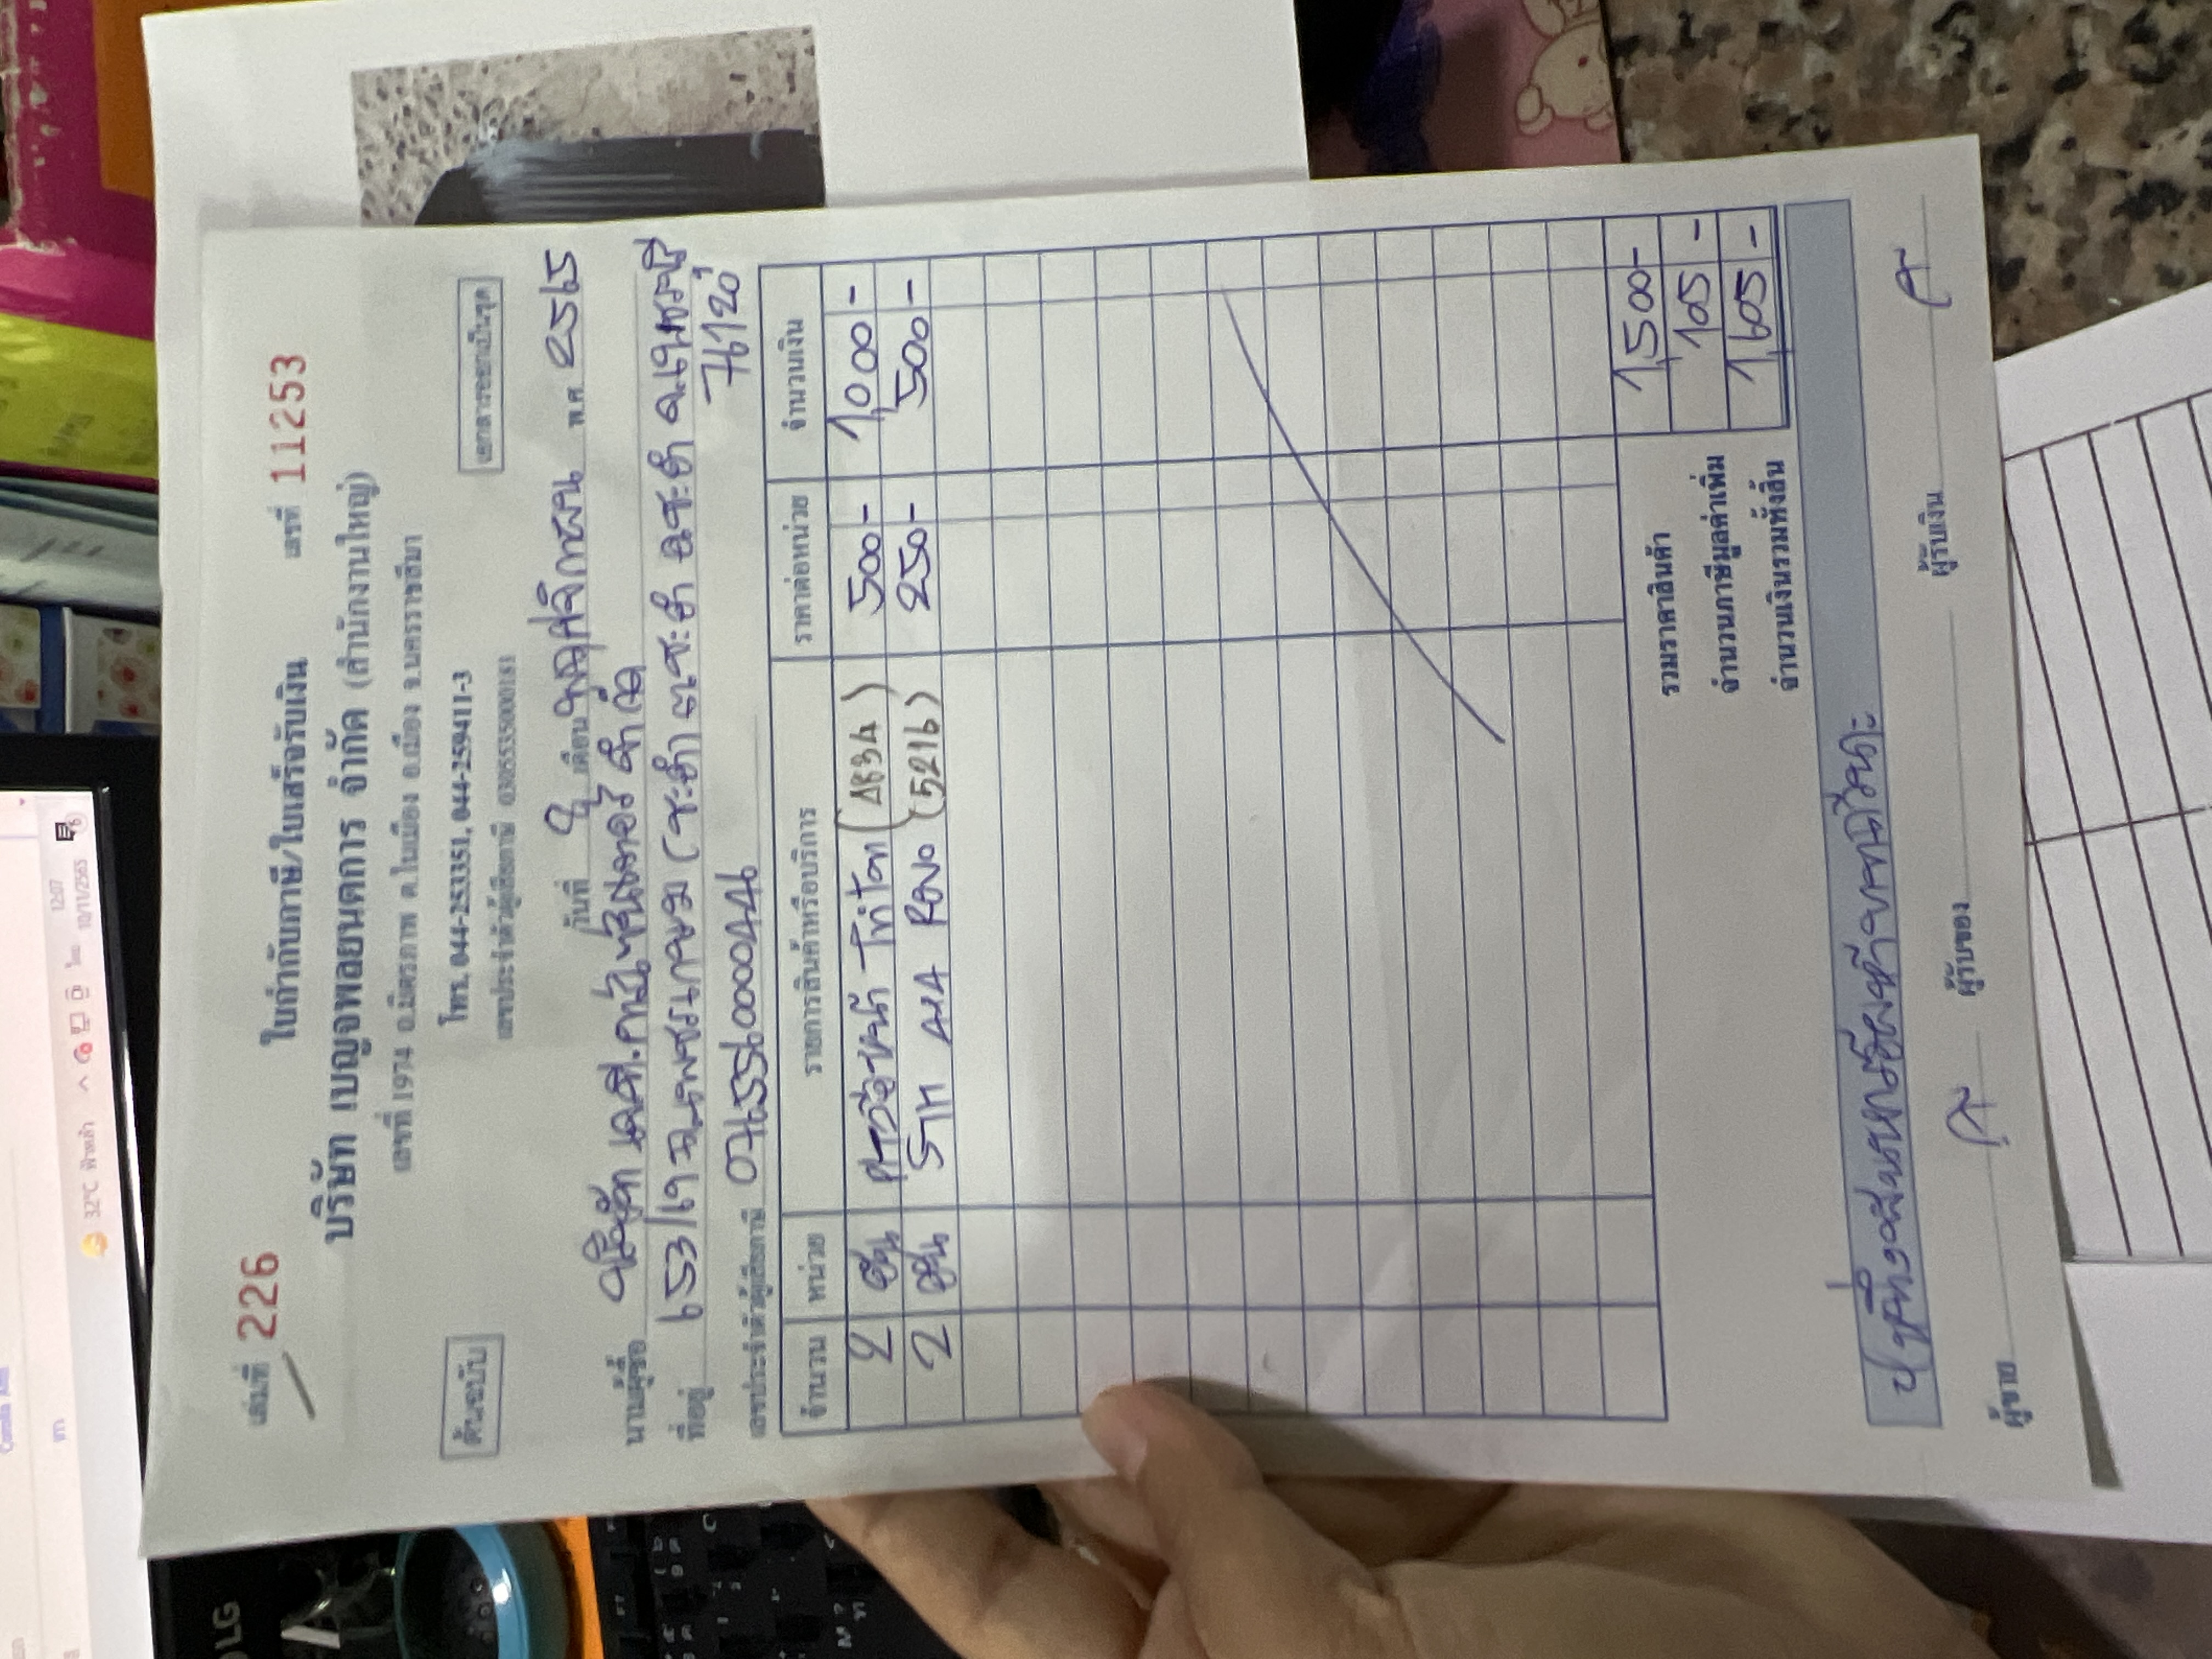 เล่มที่ 226
เลขที่ 11253
ใบกำกับภาษี/ใบเสร็จรับเงิน
บริษัท เบญจพอยนตการ จำกัด (สำนักงานใหญ่)
เลขที่ 1974 ถ.มิตรภาพ ต.ในเมือง อ.เมือง จ.นครราชสีมา
โทร. 044-253351, 044-259411-3
ต้นฉบับ
เอกสารออกเป็นชุด
เลขประจำตัวผู้เสียภาษี
วันที่ 9 เดือน พฤศจิกายน พ.ศ. 2565
นามผู้ซื้อ บริษัท เอสที.การ์เม้นท์ จำกัด
ที่อยู่ 653/19 ถ.เพชรเกษม (ชะอำ) ต.ชะอำ อ.ชะอำ จ.เพชรบุรี
76120
เลขประจำตัวผู้เสียภาษี 0765560000446
จำนวน หน่วย รายการสินค้าหรือบริการ ราคาต่อหน่วย จำนวนเงิน
2 อัน Triton (4834) 500- 1,000 -
2 อัน 4x4 Revo (5216) 250- 500 -
รวมราคาสินค้า 1,500-
จำนวนภาษีมูลค่าเพิ่ม 105 -
จำนวนเงินรวมทั้งสิ้น 1,605 -
ผู้ขาย
ผู้รับของ
ผู้รับเงิน
32°C
12:07
10/11/2565
LG